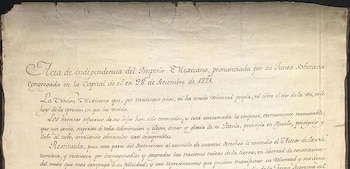 Acta de independencia del Imperio Mexicano, pronunciada por su Junta Soberana
congregada en la Capital de él en 28 de Setiembre de 1821.
La Nacion Mexicana que, por trescientos años, ni ha tenido voluntad propia, ni libre el uso de la voz, sale
hoy de la opresion en que ha vivido.
Los heroicos esfuerzos de sus hijos han sido coronados, y está consumada la empresa, eternamente memorable,
que un genio, superior á toda admiracion y elogio, amor y gloria de su Patria, principió en Iguala, prosiguió y
llevó al cabo, arrollando obstáculos casi insuperables.
Restituida, pues, esta parte del Septentrion al exercicio de cuantos derechos le concedió el Autor de la na-
turaleza, y reconocen por inenagenables y sagrados las naciones cultas de la tierra; en libertad de constituirse
del modo que mas convenga á su felicidad; y con representantes que puedan manifestar su voluntad y sus desig-